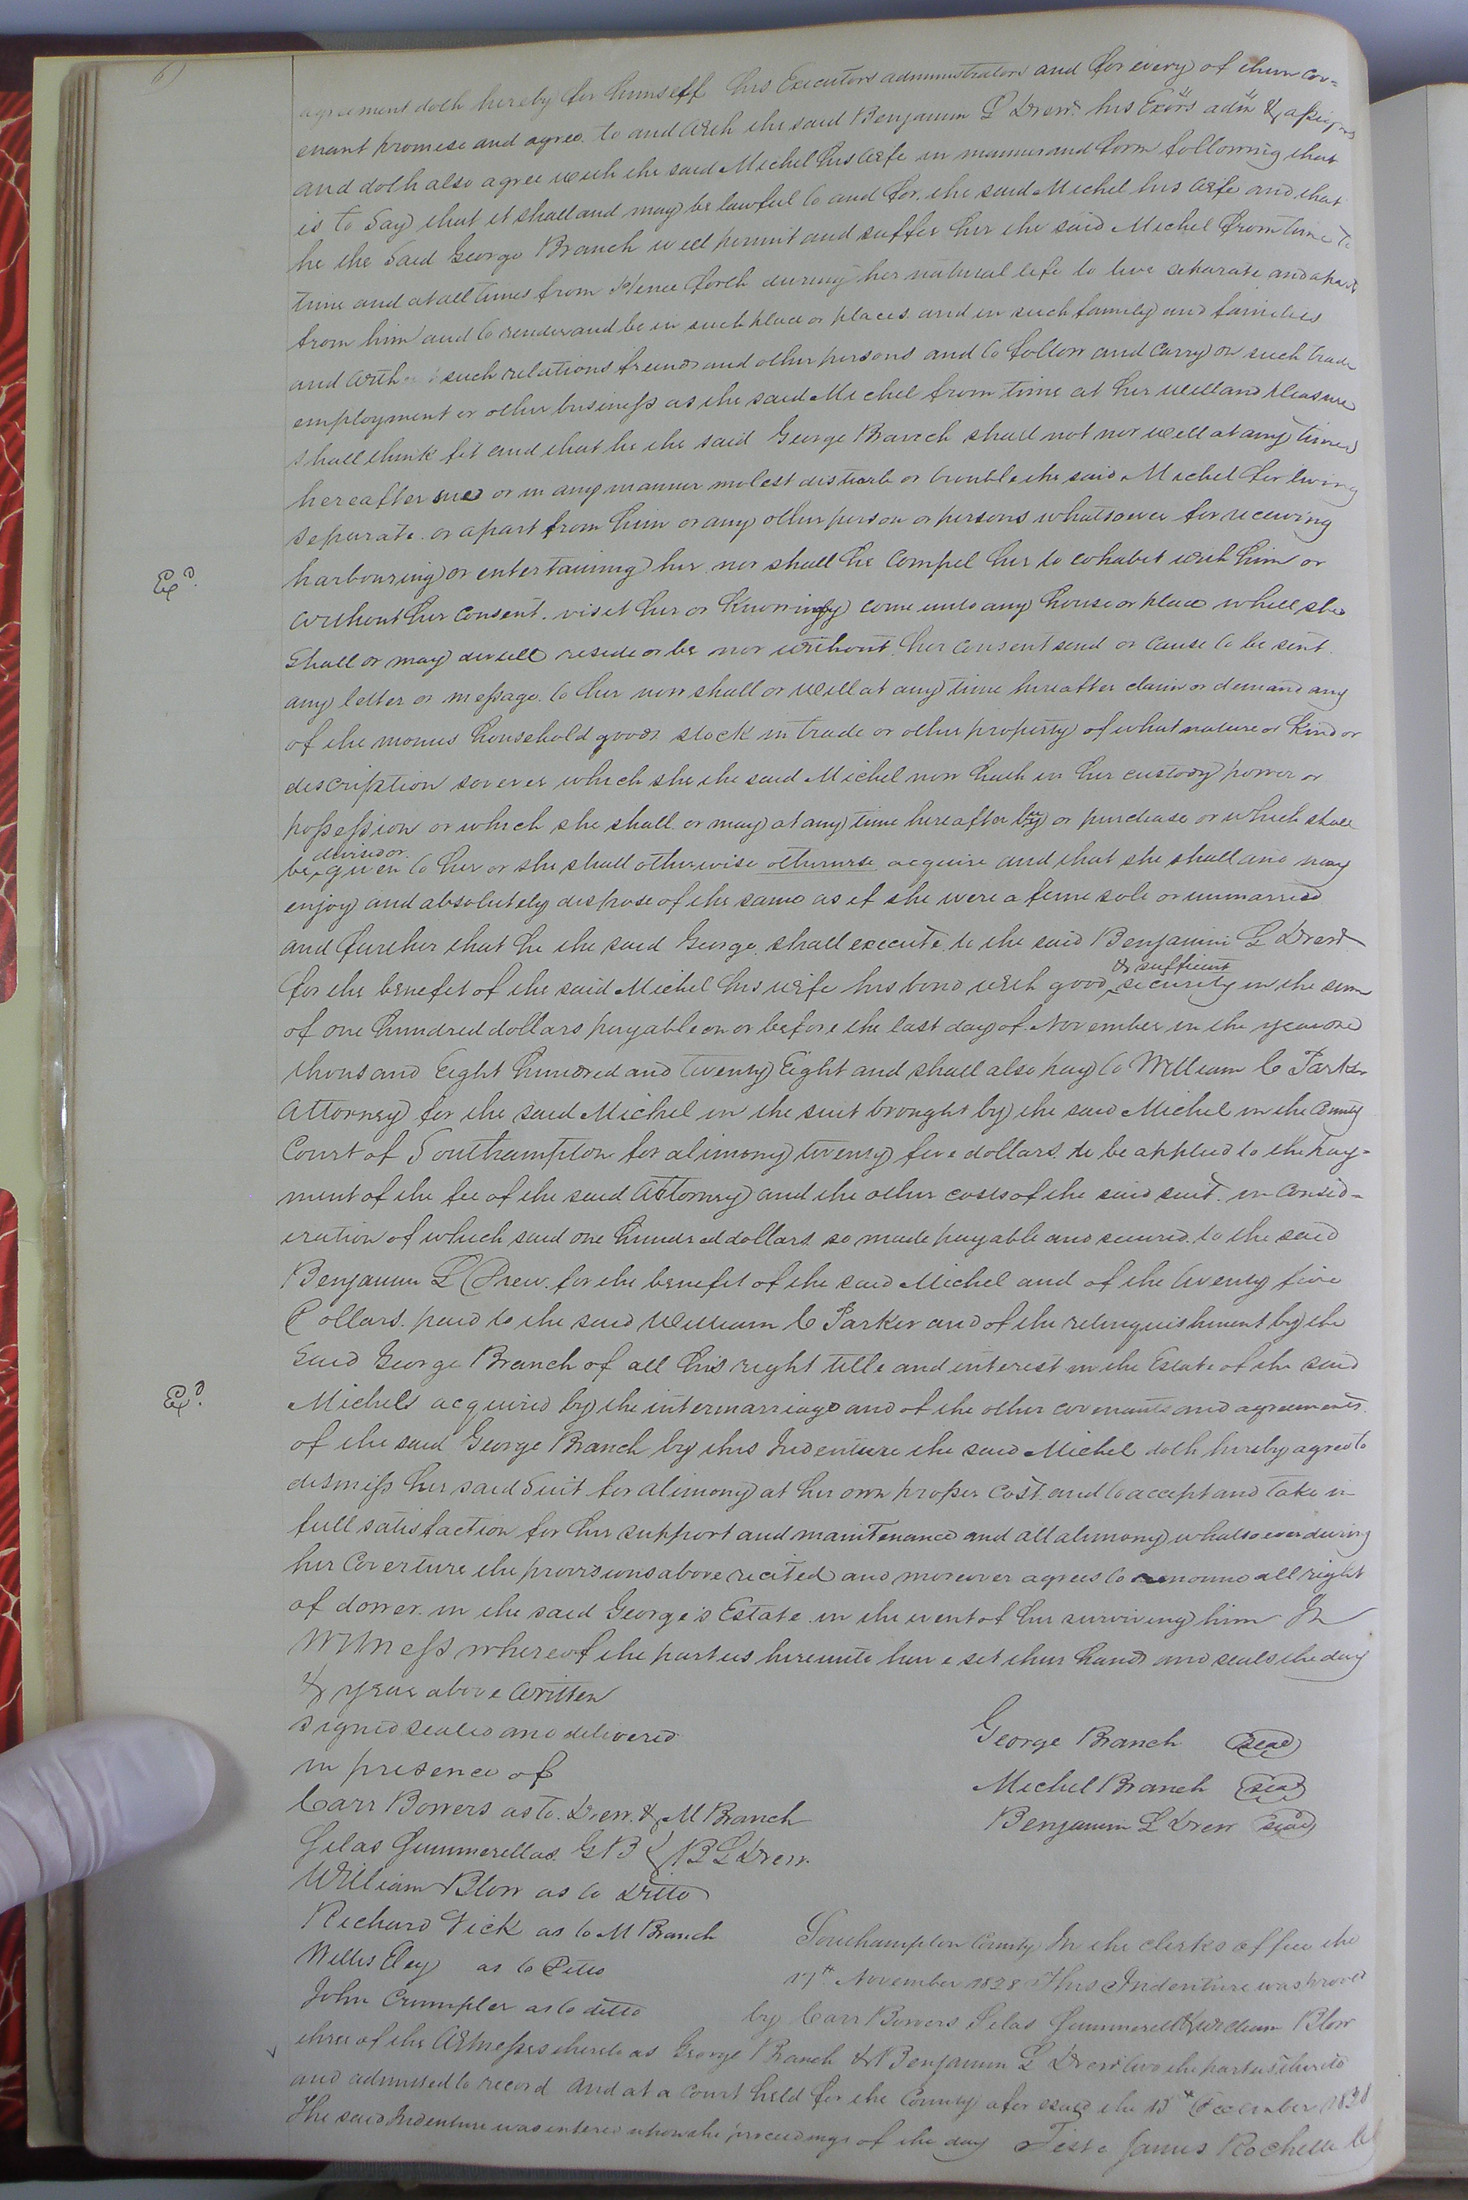 agreement doth hereby for himself his Executors administrators and for every of them cov=
enant promise and agree to and with the said Benjamin L Drew his Exors adm & assigns
and doth also agree with the said Michel his wife in manner and form following that
is to Say that it shall and may be lawful to and for the said Michel his wife and that
he the Said George Branch will permit and suffer her the said Michel from time to
time and at all times from Hence forth during her natural life to live separate and apart
from him and to reside and be in such place or places and in such family and families
and with such relations friends and other persons and to follow and carry on such trade
employment or other business as the said Michel from time at her will and pleasure
shall think fit and that he the said George Branch shall not nor will at any time
hereafter sue or in any manner molest disturb or trouble the said Michel for living
separate or apart from him or any other person or persons whatsoever for receiving
harbouring or entertaining her nor shall he compel her to cohabit with him or
Exd.
without her consent visit her or knowingly come unto any house or place whell she
Shall or may dwell reside or be nor without her consent send or cause to be sent
any letter or message to her nor shall or will at any time hereafter claim or demand any
of the monies household goods stock in trade or other property of what nature or kind or
description soever which she the said Michel now hath in her custody power or
possession or which she shall or may at any time hereafter by or purchase or which shall
devised or
be given to her or she shall otherwise otherwise acquire and that she shall and may
enjoy and absolutely dispose of the same as if she were a feme sole or unmarried
and further that he the said George shall execute to the said Benjamin L Drew
& sufficient
for the benefit of the said Michel his wife his bond with good security in the sum
of one hundred dollars payable on or before the last day of November in the year one
thousand Eight hundred and twenty Eight and shall also pay to William C Parker
Attorney for the said Michel in the suit brought by the said Michel in the County
Court of Southampton for alimony twenty five dollars to be applied to the pay=
ment of the fee of the said Attorney and the other costs of the said suit in consid=
eration of which said one hundred dollars so made payable and secured to the said
Benjamin L Drew for the benefit of the said Michel and of the twenty five
Dollars paid to the said William C Parker and of the relinquishment by the
Said George Branch of all his right title and interest in the Estate of the said
Exd.
Michels acquired by the intermarriage and of the other covenants and agreements
of the said George Branch by this Indenture the said Michel doth hereby agree to
dismiss her said Suit for alimony at her own proper cost and to accept and take in
full satisfaction for her support and maintenance and all alimony whatsoever during
her Coverture the provisions above recited and moreover agrees to renounc all right
of dower in the said George's Estate in the event of her surviving him In
Witness whereof the parties hereunto have set their hands and seals the day
& year above written
signed sealed and delivered
in presence of
George Branch seal
Michel Branch seal
Benjamin L Drew seal
Carr Bowers as to Drew & M Branch
Silas Summerell as G B & B L Drew
William Blow as to Ditto
Richard Vick as to M Branch
Willis Eley as to Ditto
John Crumpler as to ditto
Southampton County In the clerks office the
17th November 1828 This Indenture was proved
by Carr Bowers Silas Summerell & William Blow
three of the Witnesses thereto as George Branch & Benjamin L Drew two the parties thereto
and admitted to record And at a court held for the County aforesaid the 15th December 1828
The said Indenture was entered upon the proceedings of the day Teste James Rochelle Clk